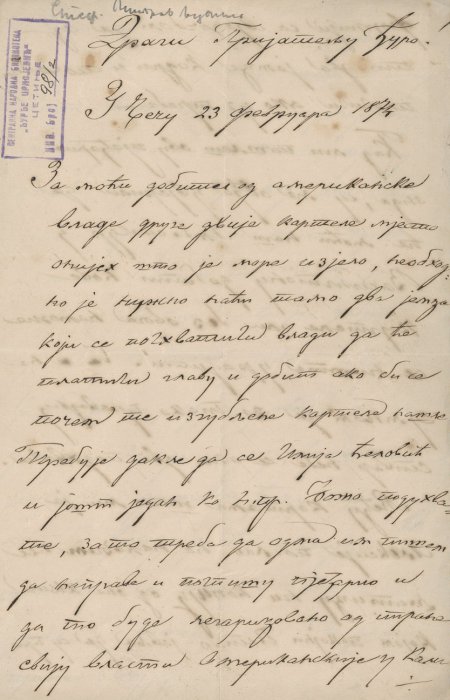 Драги Пријатељу Ђуро!
ЦЕНТРАЛНА НАРОДНА БИБЛИОТЕКА
„ЂУРЂЕ ЦРНОЈЕВИЋ“
ЦЕТИЊЕ
ИНВ. БРОЈ 98/2
23 фебруара 187
За моћи добити од американске
владе друге двије картеле мјешто
онијех што је море изјело, необход-
но је нужно наћи тамо два јемца
који се похватити влади да ће
платити главу и добит ако би се
почем те изгубљене картеле нашле
Требује дакле да се Илија Ћеловић
и јошт један ко н.пр. Божо подухва-
те, за то треба да одма им пишем
да направе и потпишу и
да то буде легаризовано од страна
свију власти Американскије у Кали